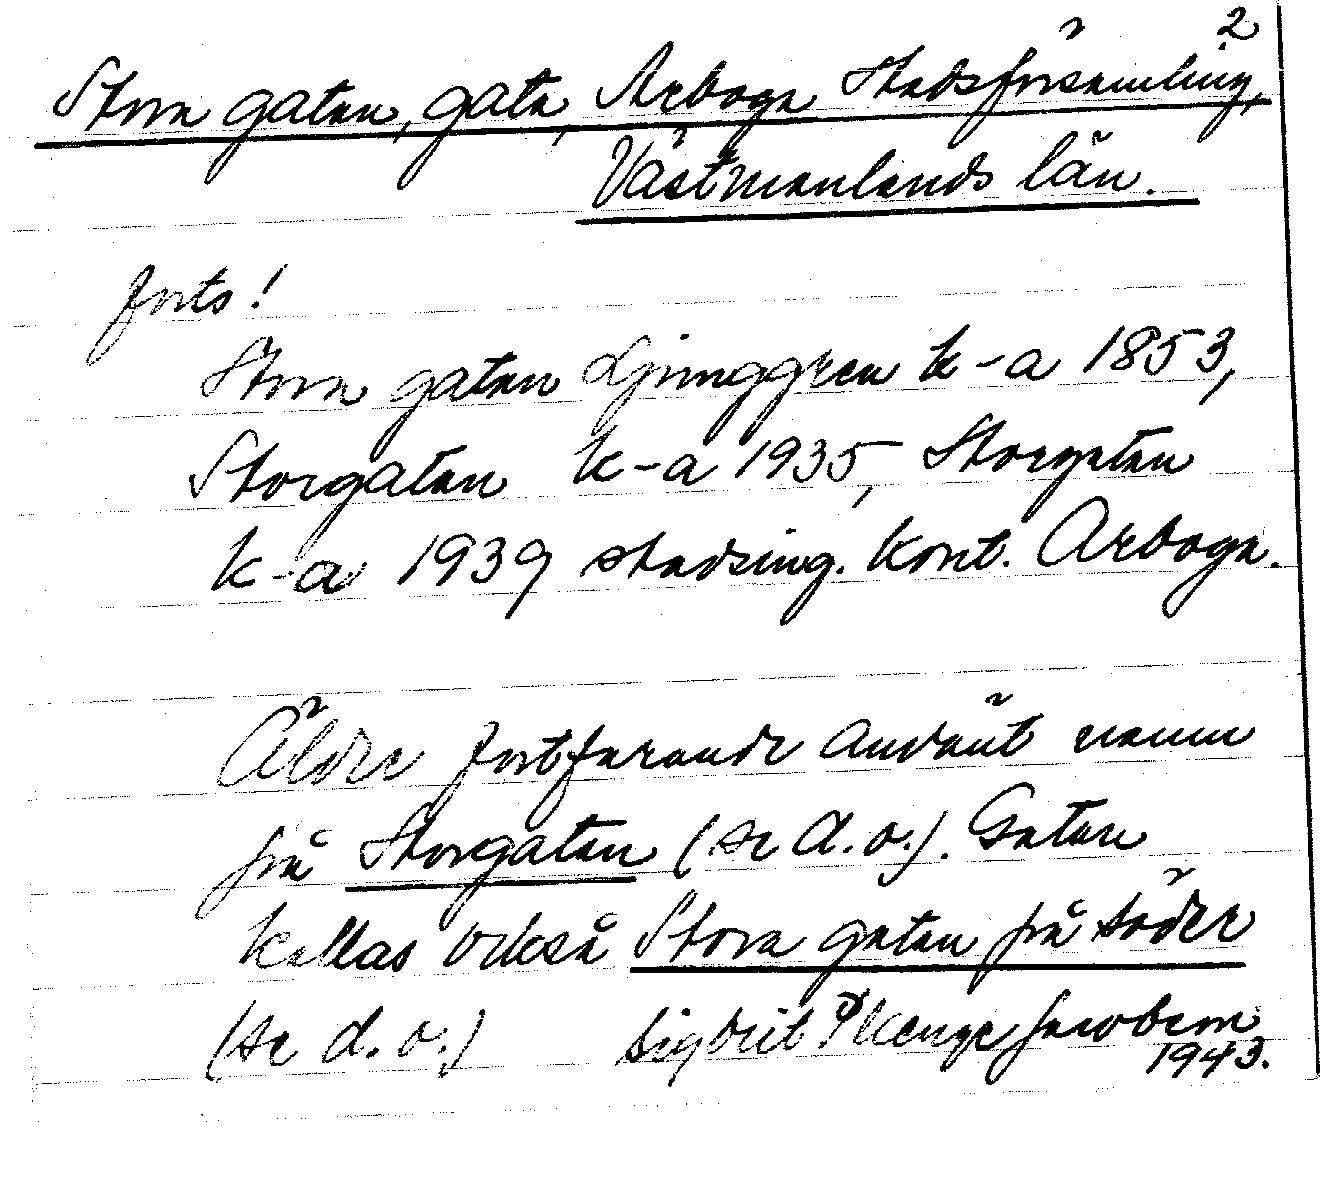 2
Stora gatan, gata, Arboga Stadsförsamling,
Västmanlands län.
forts!
Stora gatan Ljunggren k-a 1853,
Storgatan k-a 1935, Storgatan
k-a 1939 stadsing. kont. Arboga.
Äldre fortfarande använt namn
på Storgatan (se d.o.). Gatan
kallas också Stora gatan på söder
(se d.o.) Sigbrit Plænge Jacobson
1943.